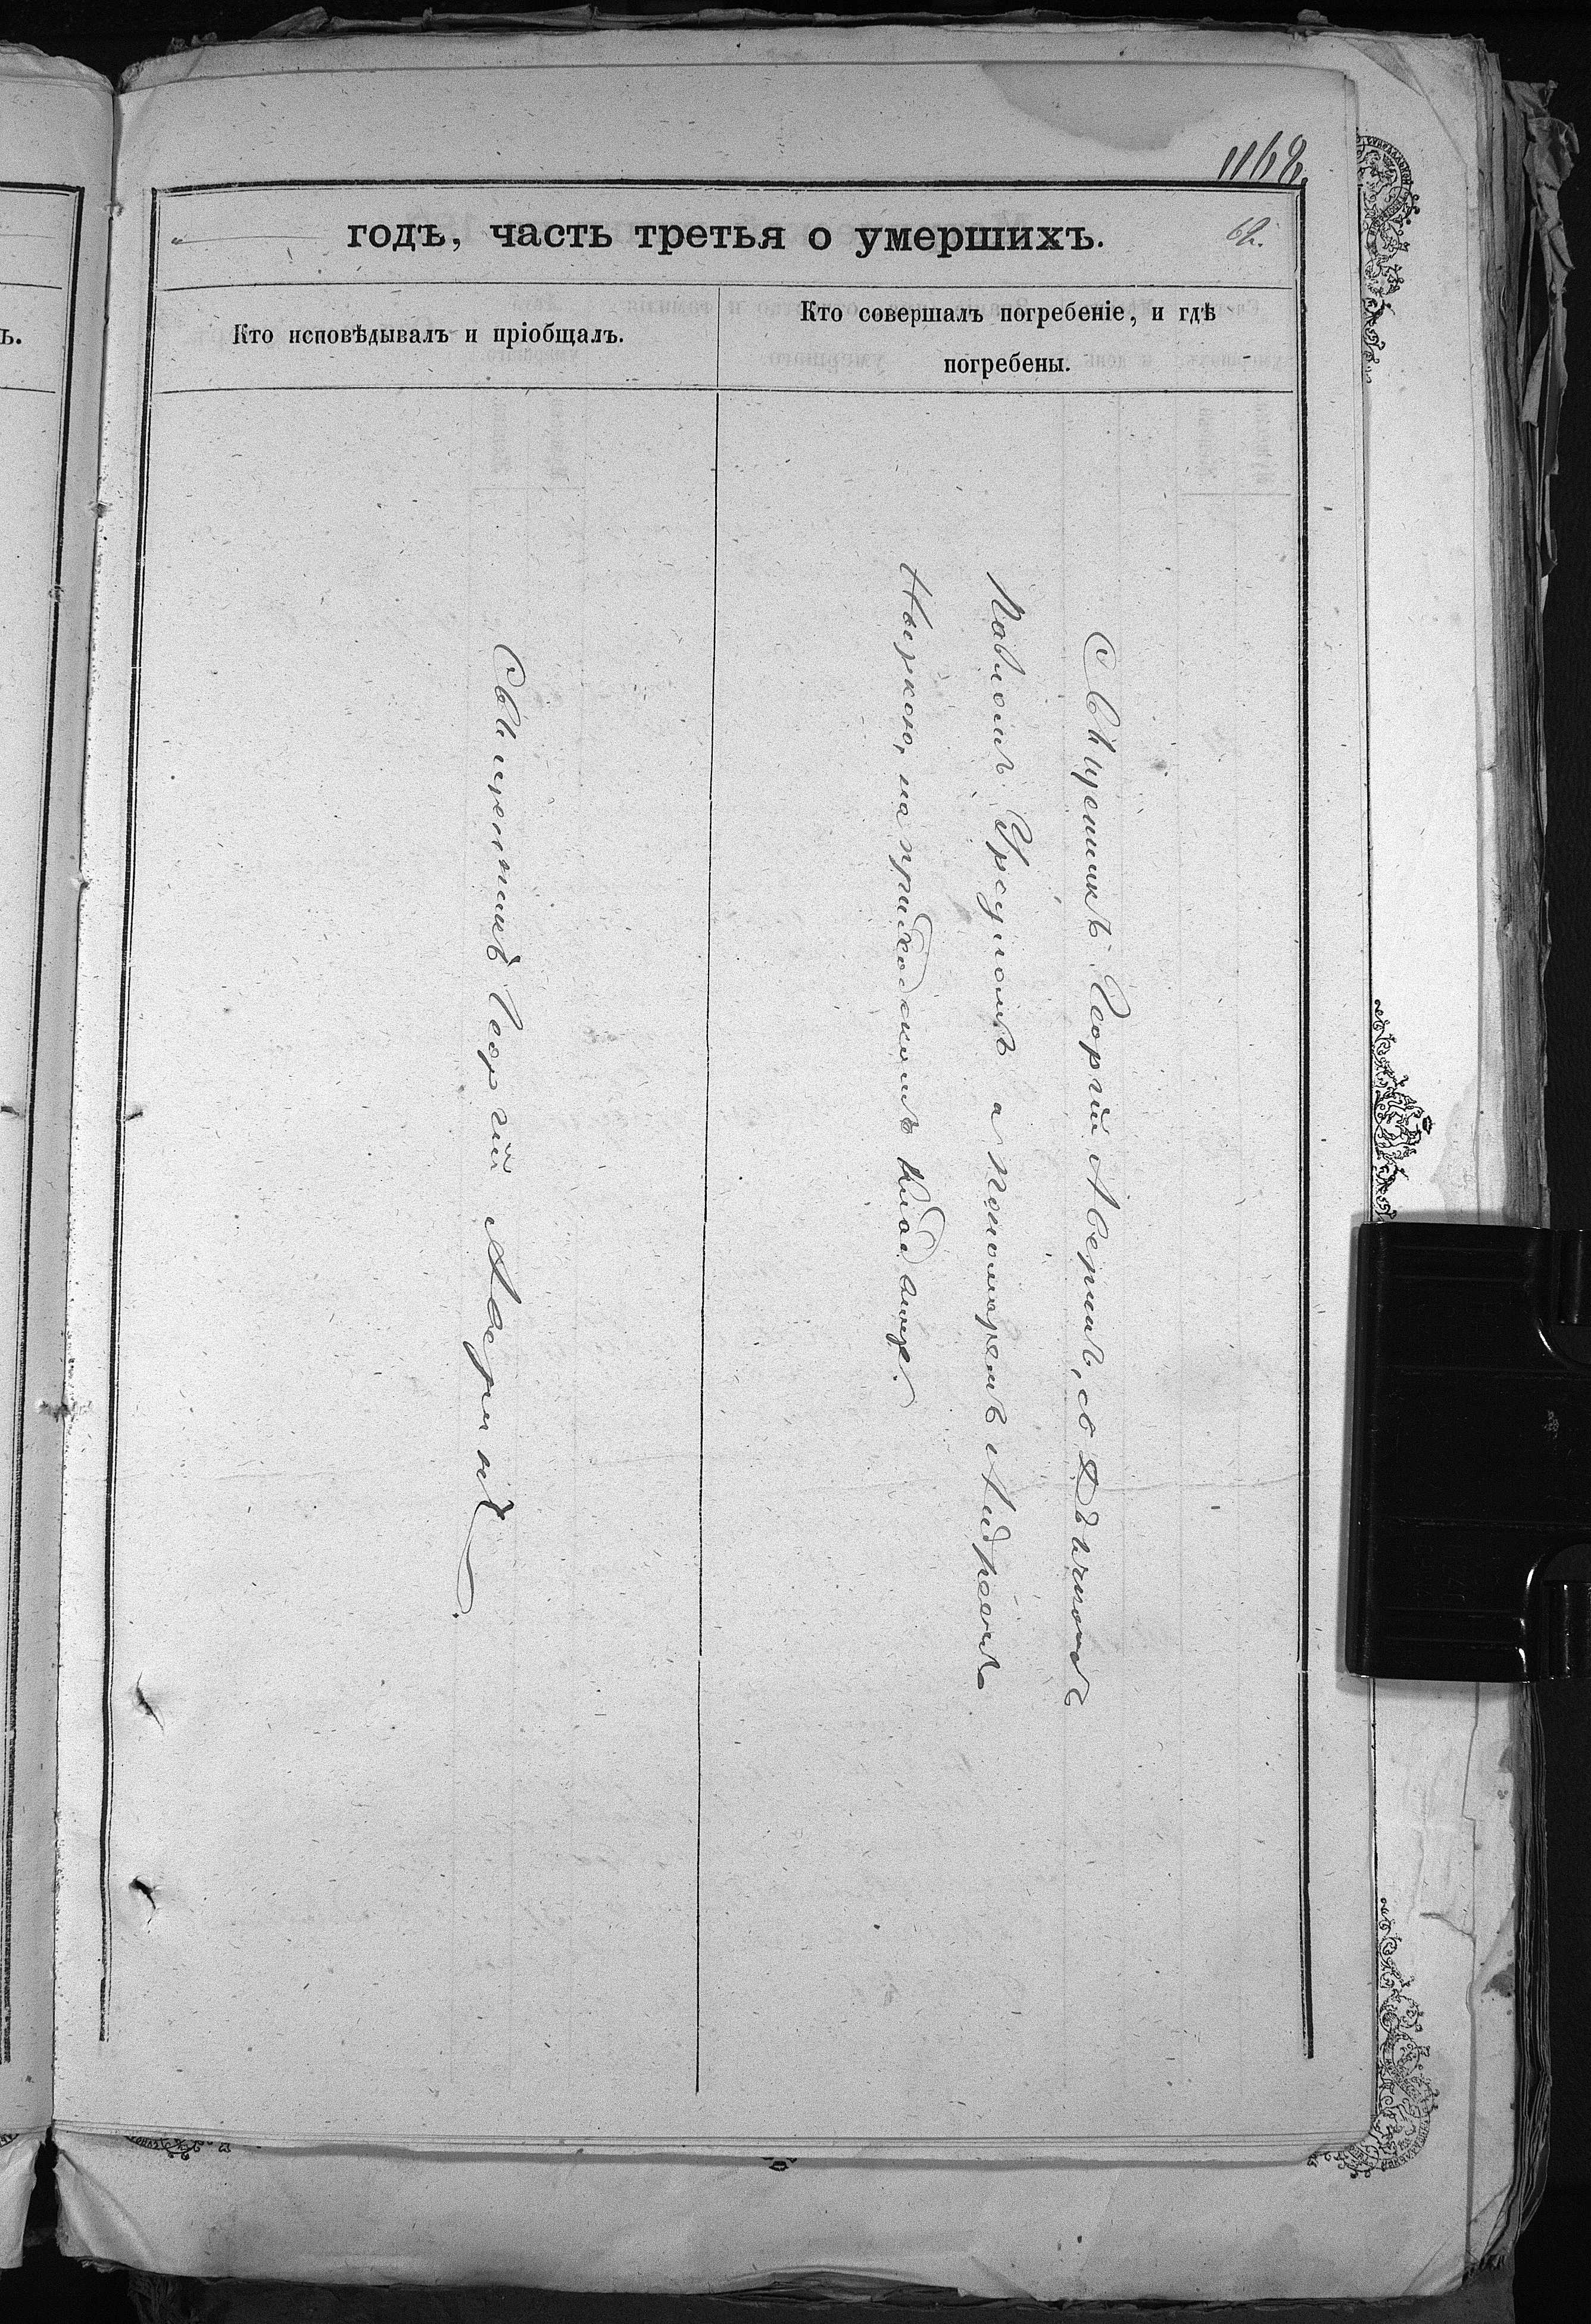 1168.
годъ, часть третья о умершихъ.
62.
Кто исповѣдывалъ и пріобщалъ.
Кто совершалъ погребеніе, и гдѣ
погребены.
Священникъ Георгій Аверинъ
Священникъ Георгій Аверинъ, съ Дьячкомъ
Павломъ и Пономаремъ Андреемъ
на приходскомъ кладбищѣ.